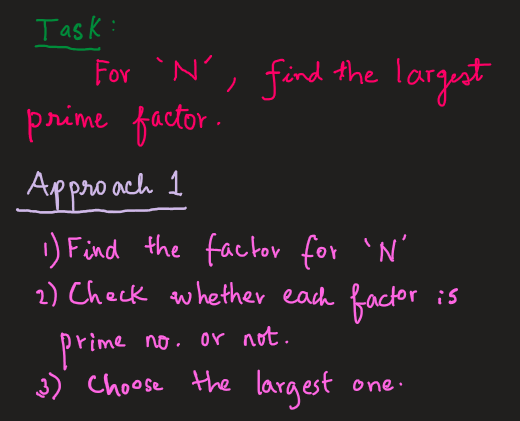 Task:
For 'N', find the largest
prime factor.
Approach 1
1) Find the factor for 'N'
2) Check whether each factor is
prime no. or not.
3) Choose the largest one.